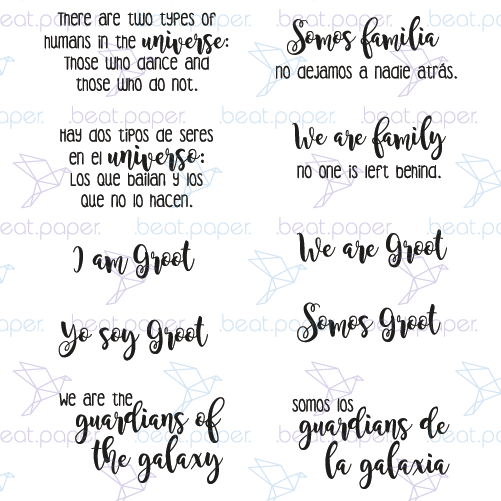 There are two types of
humans in the universe:
Those who dance and
those who do not.
Hay dos tipos de seres
en el universo:
Los que bailan y los
que no lo hacen.
I am Groot
Yo soy Groot
We are the
guardians of
the galaxy
Somos familia
no dejamos a nadie atrás.
We are family
no one is left behind.
We are Groot
Somos Groot
somos los
guardians de
la galaxia
.beat.paper.